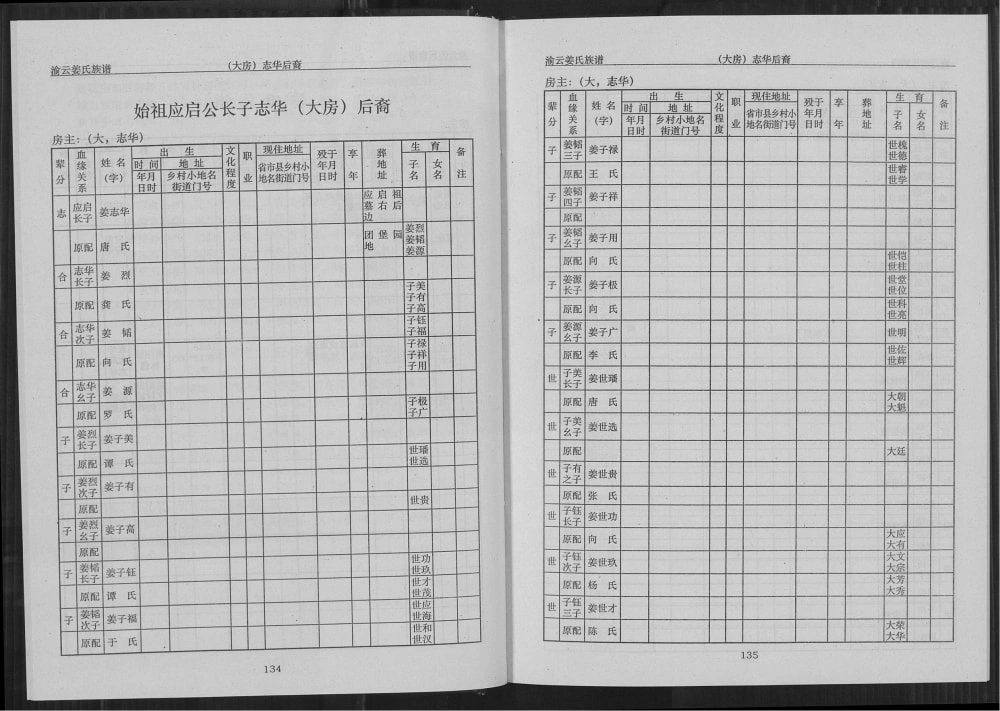 渝云姜氏族谱 （大房）志华后裔
始祖应启公长子志华（大房）后裔
房主：（大，志华）
辈分 血缘关系 姓名（字） 出生 文化程度 职业 现住地址 殁于年月日时 享年 葬地址 生育 备注
时间 地址 省市县乡村小地名街道门号 子名 女名
年月日时 乡村小地名街道门号
志 应启长子 姜志华 应启祖墓右后边
原配 唐氏 团堡园地 姜烈 姜韬 姜源
合 志华长子 姜烈
原配 龚氏 子美 子有 子高
合 志华次子 姜韬 子钰 子福
原配 向氏 子禄 子祥 子用
合 志华幺子 姜源
原配 罗氏 子极 子广
子 姜烈长子 姜子美
原配 谭氏 世璠 世选
子 姜烈次子 姜子有
原配 世贵
子 姜烈幺子 姜子高
原配
子 姜韬长子 姜子钰 世功 世玖
原配 谭氏 世才 世茂
子 姜韬次子 姜子福 世应 世海
原配 于氏 世和 世汉
134
渝云姜氏族谱 （大房）志华后裔
房主：（大，志华）
辈分 血缘关系 姓名（字） 出生 文化程度 职业 现住地址 殁于年月日时 享年 葬地址 生育 备注
时间 地址 省市县乡村小地名街道门号 子名 女名
年月日时 乡村小地名街道门号
子 姜韬三子 姜子禄 世槐 世德
原配 王氏 世睿 世学
子 姜韬四子 姜子祥
原配
子 姜韬幺子 姜子用
原配 向氏 世恺 世柱
子 姜源长子 姜子极 世堂 世位
原配 向氏 世科 世亮
子 姜源幺子 姜子广 世明
原配 李氏 世佐 世辉
世 子美长子 姜世璠
原配 唐氏 大朝 大魁
世 子美幺子 姜世选
原配 大廷
世 子有之子 姜世贵
原配 张氏
世 子钰长子 姜世功
原配 向氏 大应 大有
世 子钰次子 姜世玖 大文 大宗
原配 杨氏 大芳 大秀
世 子钰三子 姜世才
原配 陈氏 大荣 大华
135